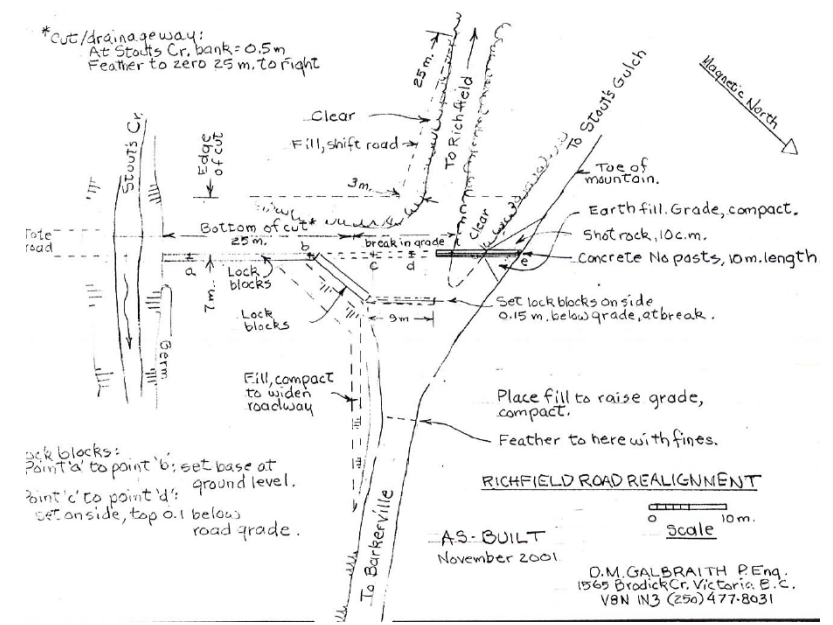 *Cut/drainageway:
At Stouts Cr. bank = 0.5m
Feather to zero 25 m. to right
25 m.
To Richfield
To Stout's Gulch
Magnetic North
Clear
Fill, shift road
Stout's Cr.
Edge of cut
3m.
Clear
Toe of
mountain.
Earth fill. Grade, compact.
Shot rock, 10 c.m.
Concrete No posts, 10 m. length
Bottom of cut*
25 m.
break in grade
Tote
road
a
b
c
d
e
7 m.
Lock
blocks
Lock
blocks
9 m
Set lock blocks on side
0.15 m. below grade, at break.
Berm
Fill, compact
to widen
roadway
Place fill to raise grade,
compact.
Feather to here with fines.
ock blocks:
Point 'a' to point 'b': set base at
ground level.
Point 'c' to point 'd':
set on side, top 0.1 below
road grade.
To Barkerville
RICHFIELD ROAD REALIGNMENT
0 10 m.
Scale
AS-BUILT
November 2001
D.M. GALBRAITH P.Eng.
1565 Brodick Cr. Victoria B.C.
V8N 1N3 (250) 477-8031